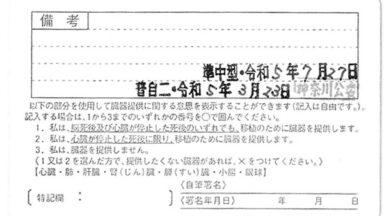 備考
準中型・令和5年7月27日
普自二・令和5年3月23日 神奈川公委
以下の部分を使用して臓器提供に関する意思を表示することができます(記入は自由です。)
記入する場合は、1から3までのいずれかの番号を○で囲んでください。
1. 私は、脳死後及び心臓が停止した死後のいずれでも、移植のために臓器を提供します。
2. 私は、心臓が停止した死後に限り、移植のために臓器を提供します。
3. 私は、臓器を提供しません。
(1又は2を選んだ方で、提供したくない臓器があれば、×をつけてください。)
【心臓・肺・肝臓・腎(じん)臓・膵(すい)臓・小腸・眼球】
〔特記欄: 〕
(自筆署名)
(署名年月日) 年 月 日